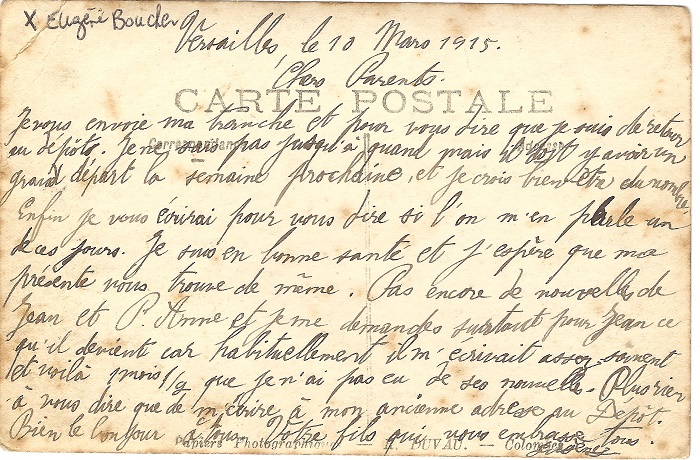 X Eugène Boucher
Versailles, le 10 Mars 1915.
Chers Parents.
CARTE POSTALE
Je vous envoie ma tranche et pour vous dire que je suis de retour
Correspondance
Adresse
au dépôt. Je ne sais pas jusqu'à quand mais il doit y avoir un
grand départ la semaine prochaine, et je crois bien être du nombre.
Enfin je vous écrirai pour vous dire si l'on m'en parle un
de ces jours. Je suis en bonne santé et j'espère que ma
présente vous trouve de même. Pas encore de nouvelles de
Jean et P. Anne et je me demandes surtout pour Jean ce
qu'il devient car habituellement il m'écrivait assez souvent
et voilà 1 mois 1/2 que je n'ai pas eu de ses nouvelles. Plus rien
à vous dire que de m'écrire à mon ancienne adresse au Dépôt.
Bien le bonjour à tous. Votre fils qui vous embrasse tous.
Papiers Photographiques DUVAU. — Colombes
Eugène